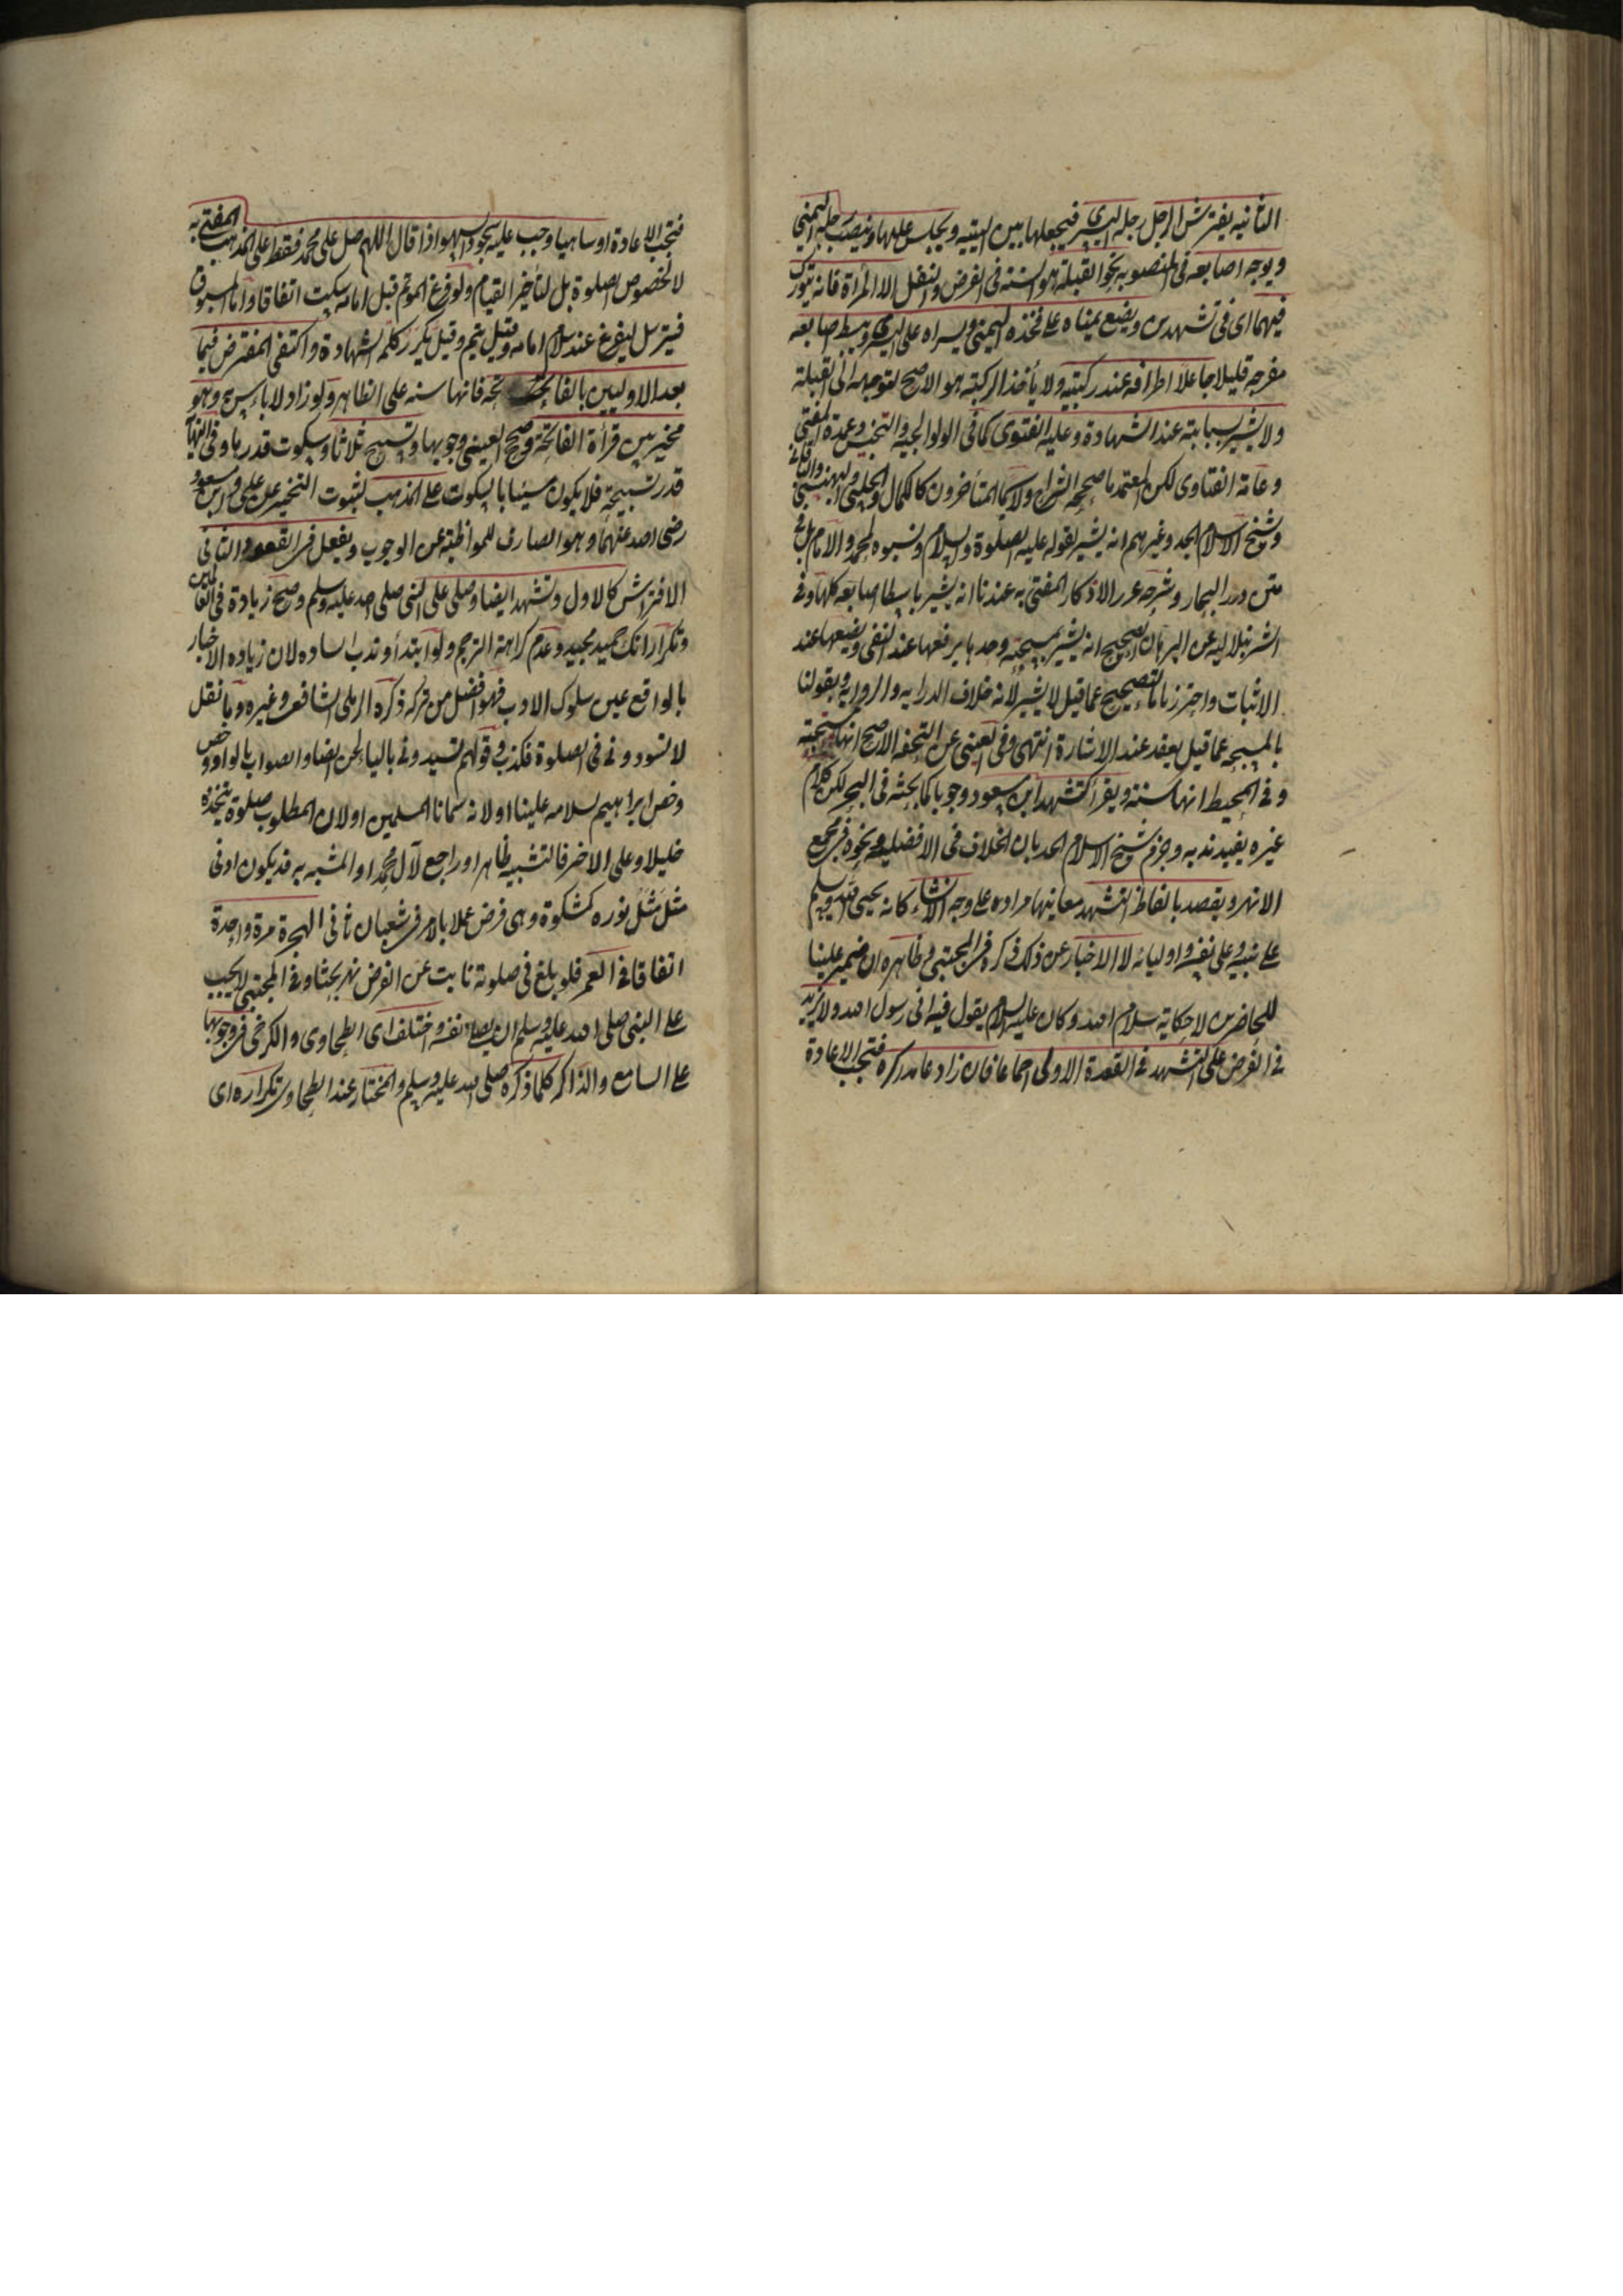 الثانيه يفترش الرجل رجله اليسرى فيجعلها بين اليتيه ويجلس عليها وينصب رجله اليمنى
ويوجه اصابعه فى المنصوبه نحو القبلة هو السنه فى الفرض والنفل الا المرأة فانه تتورك
فيهما اى فى تشهدين ويضع يمناه على فخذه اليمنى ويسراه على اليسرى ويبسط اصابعه
مفرجه قليلا جاعلا اطرافه عند ركبتيه ولا يأخذ الركبته هو الاصح لتوجهه الى القبلة
ولا يشير بسبابته عند الشهادة وعليه الفتوى كما فى الولوالجيه والتجنيس وعمدة المفتى
وعامة الفتاوى لكن المعتمد ما صححه الشراح ولا سيما المتأخرون كالكمال والحلبى والبهنسى والباقانى
وشيخ الاسلام الجد وغيرهم انه يشير لفعله عليه الصلوة والسلام ونسبوه لمحمد والامام بل فى
متن درر البحار وشرحه غرر الاذكار المفتى به عندنا انه يشير باسطا اصابعه كلها وفى
الشرنبلاليه عن البرهان الصحيح انه يشير بمسبحته وحدها يرفعها عند النفى ويضعها عند
الاثبات واحترزنا بالصحيح عما قيل لا يشير لانه خلاف الدرايه والروايه وبقولنا
بالمسبحه عما قيل يعقد عند الاشارة انتهى وفى العينى عن التحفه الاصح انها مستحبته
وفى المحيط انها سنته ويقرأ كتشهد ابن مسعود وجوبا كما بحثه فى البحر لكن كلام
غيره يفيد ندبه وجزم شيخ الاسلام الجد بان الخلاف فى الافضليه ونحوه فى مجمع
الانهر ويقصد بالفاظ التشهد معانيها مراده على وجه الانشاء كانه يحيى الله ويسلم
على نبيه وعلى نفسه واوليائه لا الاخبار عن ذلك ذكره فى المجتبى وظاهره ان ضمير علينا
للحاضرين لا حكاية سلام الله وكان عليه السلام يقول فيه انى رسول الله ولا يزيد
فى الفرض على التشهد فى القعدة الاولى اجماعا فان زاد عامدا كره فتجب الاعادة
فتجب الاعادة او ساهيا وجب عليه سجود السهو اذا قال اللهم صل على محمد فقط على المذهب المفتى به
لا لخصوص الصلوة بل لتأخير القيام ولو فرغ المؤتم قبل امامه سكت اتفاقا واما المسبوق
فيترسل ليفرغ عند سلام امامه وقيل يتم وقيل يكرر كلمة الشهادة واكتفى المفترض فيما
بعد الاوليين بالفاتحة فانها سنه على الظاهر ولو زاد لا باس به وهو
مخير بين قرأة الفاتحة وصحح العينى وجوبها وتسبيح ثلاثا وسكوت قدرها وفى النهاية
قدر تسبيحة فلا يكون مسيئا بالسكوت على المذهب لثبوت التخيير عن على وابن مسعود
رضى الله عنهما وهو الصارف للمواظبته عن الوجوب ويفعل فى القعود الثانى
الافتراش كالاول وتشهد ايضا وصلى على النبى صلى الله عليه وسلم وصح زيادة فى العالمين
وتكرار انك حميد مجيد وعدم كراهة الترحم ولو ابتدأ وندب السياده لان زياده الاخبار
بالواقع عين سلوك الادب فهو افضل من تركه ذكره الرملى الشافعى وغيره وما نقل
لا تسودونى فى الصلوة فكذب وقولهم تسيدونى بالياء لحن ايضا والصواب بالواو وخص
وخص ابراهيم لسلامه علينا او لانه سمانا المسلمين او لان المطلوب صلوة يتخذه
خليلا وعلى الاخير فالتشبيه ظاهر او راجع لآل محمد او المشبه به قد يكون ادنى
مثل مثل نوره كمشكوة وهى فرض عملا بالامر فى شعبان ثانى الهجرة مرة واحدة
اتفاقا فى العمر فلو بلغ فى صلوته نابت عن الفرض نهر بحثا وفى المجتبى لا يجب
على النبى صلى الله عليه وسلم ان يصلى نفسه واختلف اى الطحاوى والكرخى فى وجوبها
على السامع والذاكر كلما ذكره صلى الله عليه وسلم والمختار عند الطحاوى تكراره اى